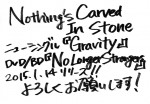 Nothing's Carved
In Stone
ニューシングル『Gravity』
DVD/BD『No Longer Strangers』
2015.1.14 リリース!!
よろしくお願いします!